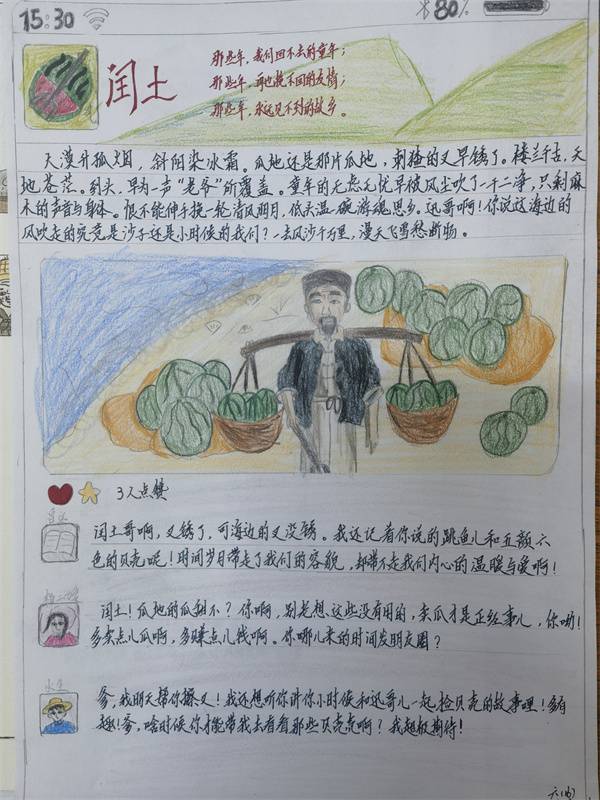 15:30 80%
闰土
那些年,我们回不去的童年;
那些年,再也挽不回的友情;
那些年,永远见不到的故乡。
大漠升孤烟,斜阳染冰霜。瓜地还是那片瓜地,刺猹的叉早锈了。楼兰千古,天
地苍茫。到头,早为一步“老爷”所覆盖。童年的无虑无忧早被风尘吹了一干二净,只剩麻
木的声音与身体。恨不能伸手挽一轮清风朗月,低头温一碗游魂思乡。迅哥啊!你说这海边的
风吹走的究竟是沙子还是小时候的我们?一去风沙千万里,漫天飞雪愁断肠。
3人点赞
闰土哥啊,叉锈了,可海边的叉没锈。我还记着你说的跳鱼儿和五颜六
色的贝壳呢!时间岁月带走了我们的容貌,却带不走我们内心的温暖与爱啊!
闰土!瓜地的瓜甜不?你啊,别老想这些没有用的,卖瓜才是正经事儿,你呦!
多卖点儿瓜啊,多赚点儿钱啊。你哪儿来的时间发朋友圈?
水生
爹,我明天帮你擦叉!我还想听你讲你小时候和迅哥儿一起捡贝壳的故事哩!多有
趣!爹,啥时候你才能带我去看看那些贝壳壳啊?我超级期待!